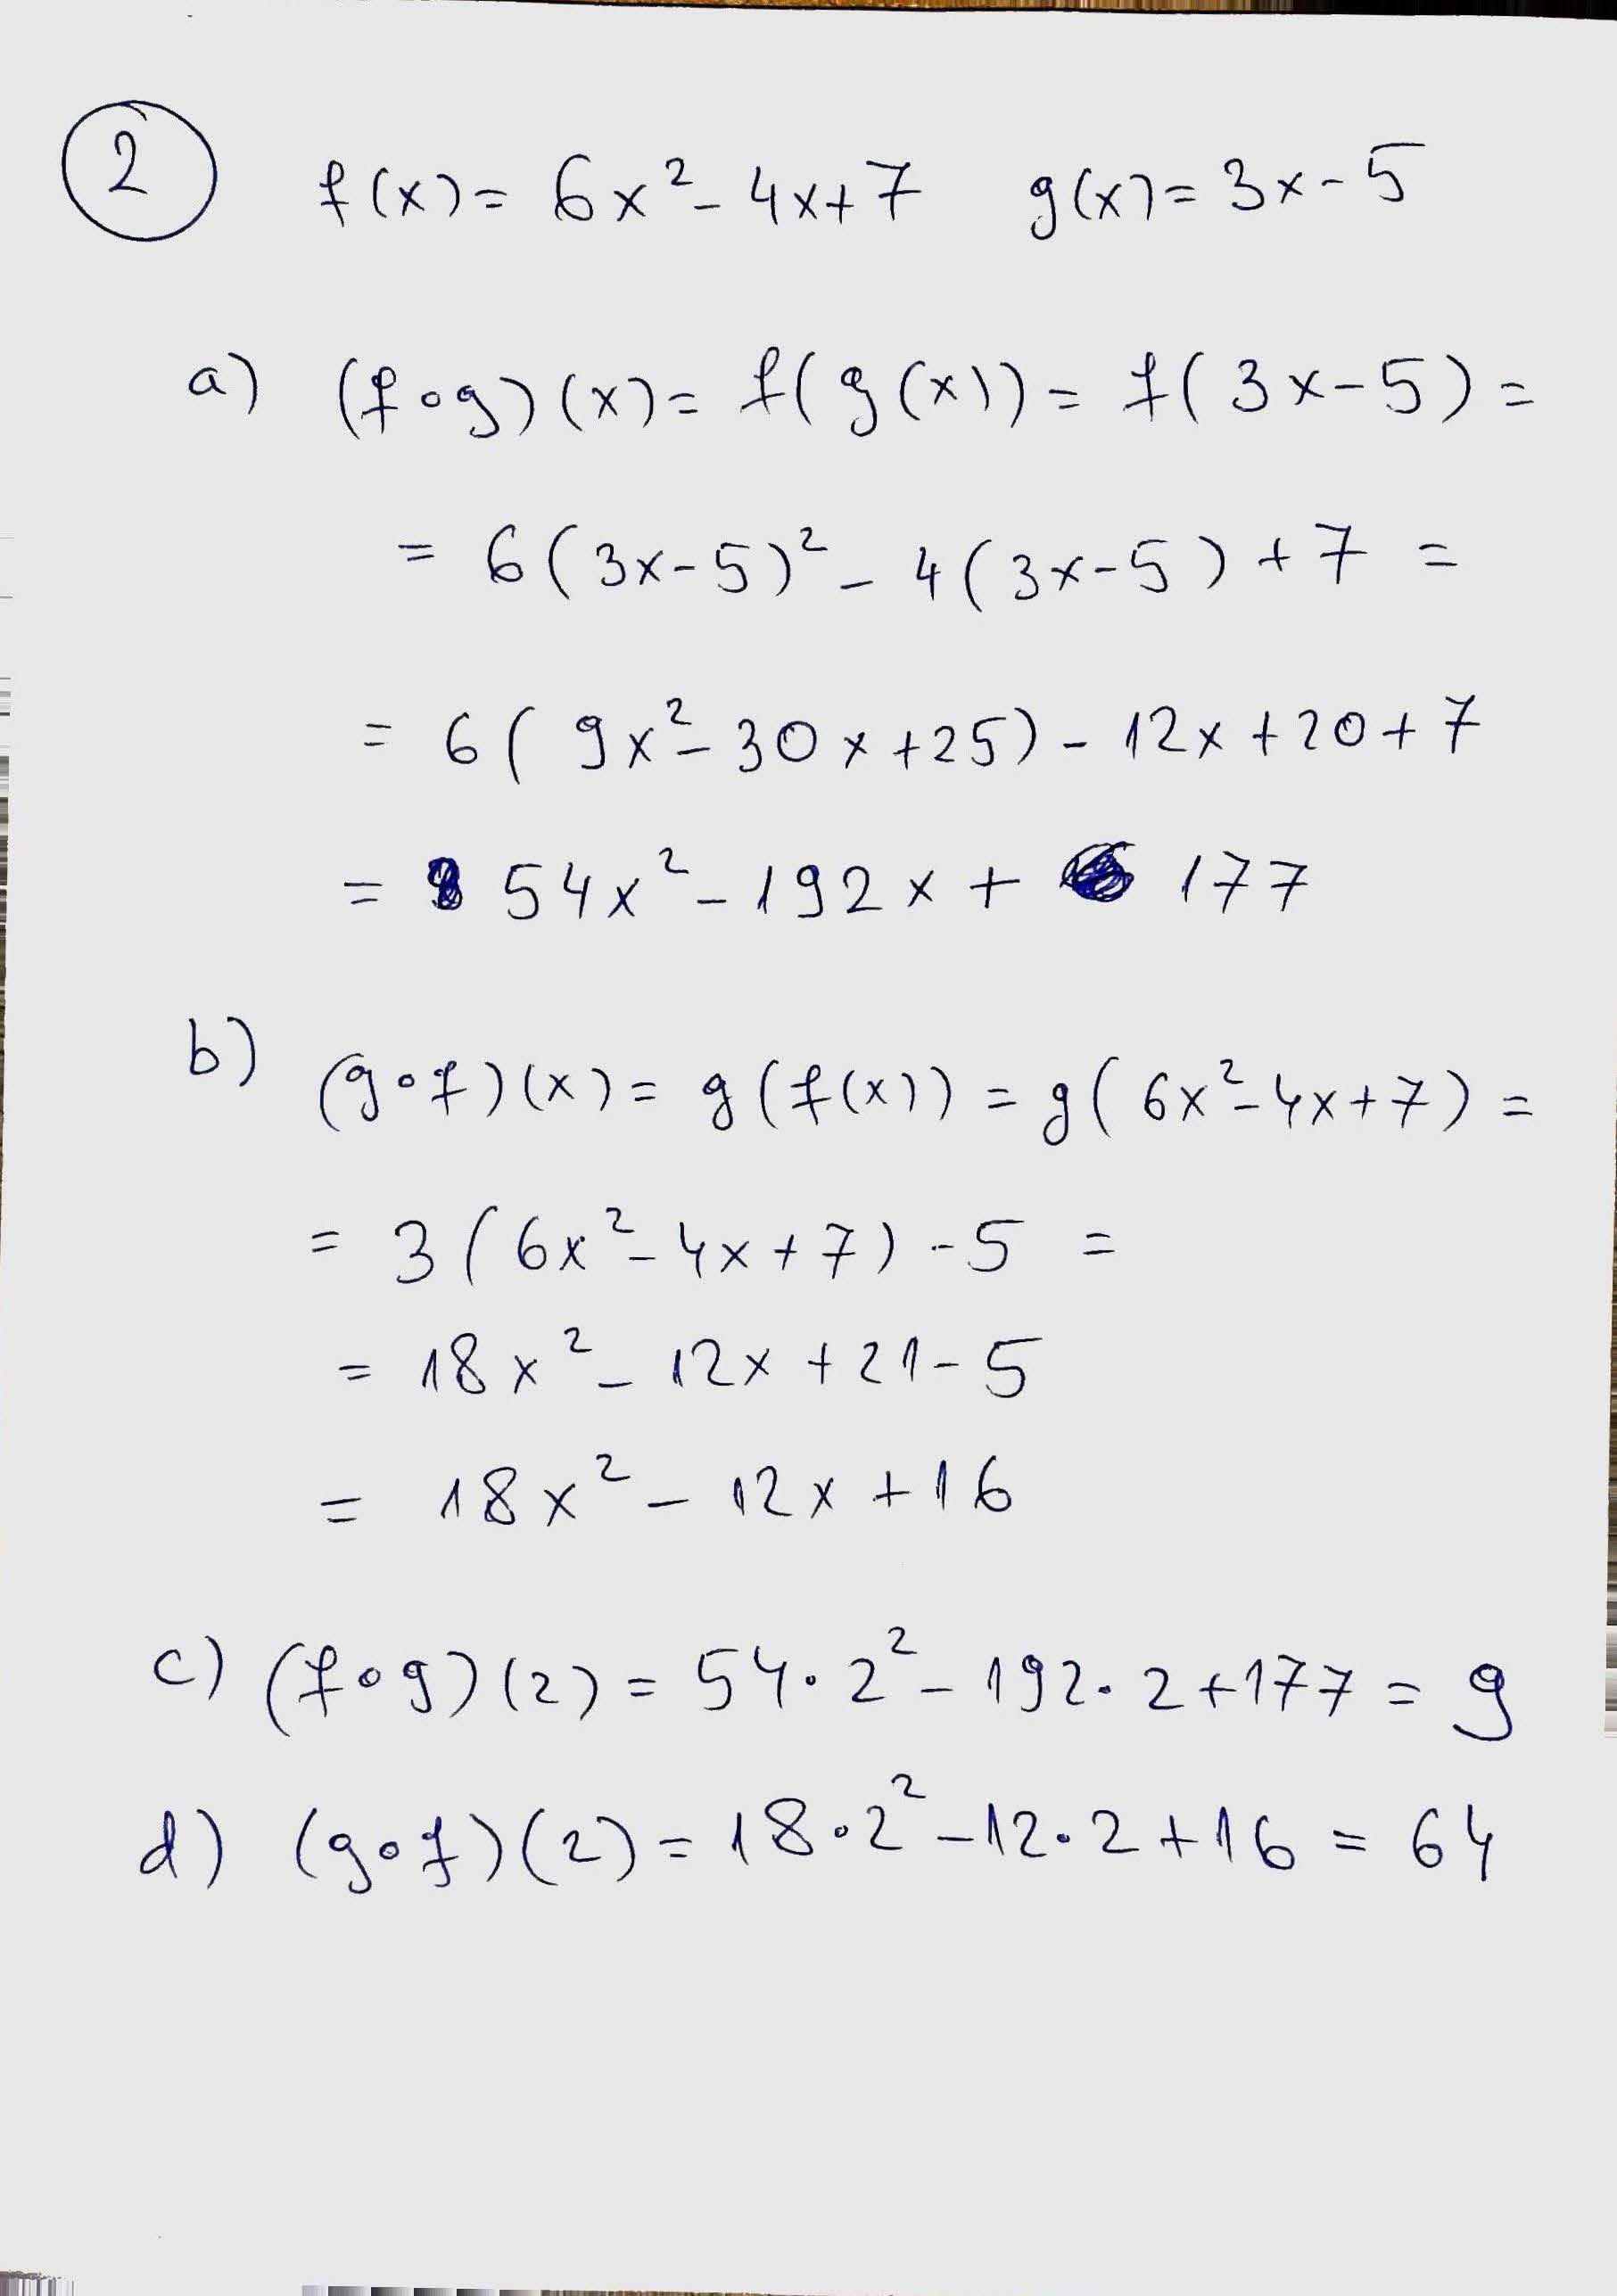 2 f(x)= 6x²-4x+7 g(x)=3x-5
a) (f∘g)(x)= f(g(x))= f(3x-5)=
= 6(3x-5)²-4(3x-5)+7=
= 6(9x²-30x+25)-12x+20+7
= 54x²-192x+177
b) (g∘f)(x)= g(f(x))=g(6x²-4x+7)=
= 3(6x²-4x+7)-5=
= 18x²-12x+21-5
= 18x²-12x+16
c) (f∘g)(2)=54·2²-192·2+177=9
d) (g∘f)(2)=18·2²-12·2+16=64